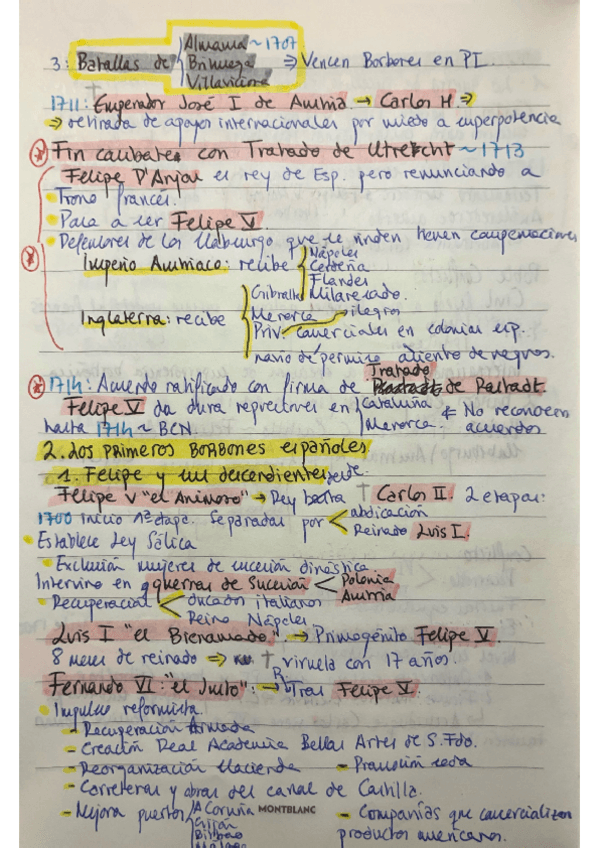 Almansa ~ 1707
3: Batallas de Brihuega ⇒ Vencen Borbones en PI.
Villaviciosa
1711: Emperador José I de Austria → Carlos H ⇒
⇒ retirada de apoyos internacionales por miedo a superpotencia
* Fin combates con Tratado de Utrecht ~ 1713
Felipe D'Anjou el rey de Esp. pero renunciando a
• Trono francés.
• Pasa a ser Felipe V
• Defensores de los Habsburgo que se rinden tienen compensaciones
* Imperio Austriaco: recibe Nápoles
Cerdeña
Flandes
Milanesado.
Inglaterra: recibe Gibraltar
Menorca
Priv. comerciales en colonias esp.
navío de permiso asiento de negros.
* 1714: Acuerdo ratificado con firma de Tratado de Rastadt
Felipe V da dura represiones en Cataluña * No reconocen
hasta 1714 ~ BCN. Menorca. acuerdos
2. LOS PRIMEROS BORBONES españoles
1. Felipe y sus descendientes
Felipe V "el Animoso" → Rey † Carlos II. 2 etapas:
1700 inicio 1ª etapa. Separadas por abdicación
Reinado Luis I.
• Establece Ley Sálica
• Exclusión mujeres de sucesión dinástica.
Intervino en guerras de Sucesión Polonia
Austria
• Recuperación ducados italianos
Reino Nápoles
Luis I "el Bienamado" → Primogénito Felipe V
8 meses de reinado ⇒ † viruela con 17 años.
Fernando VI: "el Justo": → R Tras Felipe V.
• Impulso reformista.
- Recuperación Armada
- Creación Real Academia Bellas Artes de S. Fdo.
- Reorganización Hacienda - Promoción seda
- Carreteras y obras del canal de Castilla.
- Mejora puertos A Coruña MONTBLANC - Compañías que comercializan
Gijón productos americanos.
Bilbao
Málaga